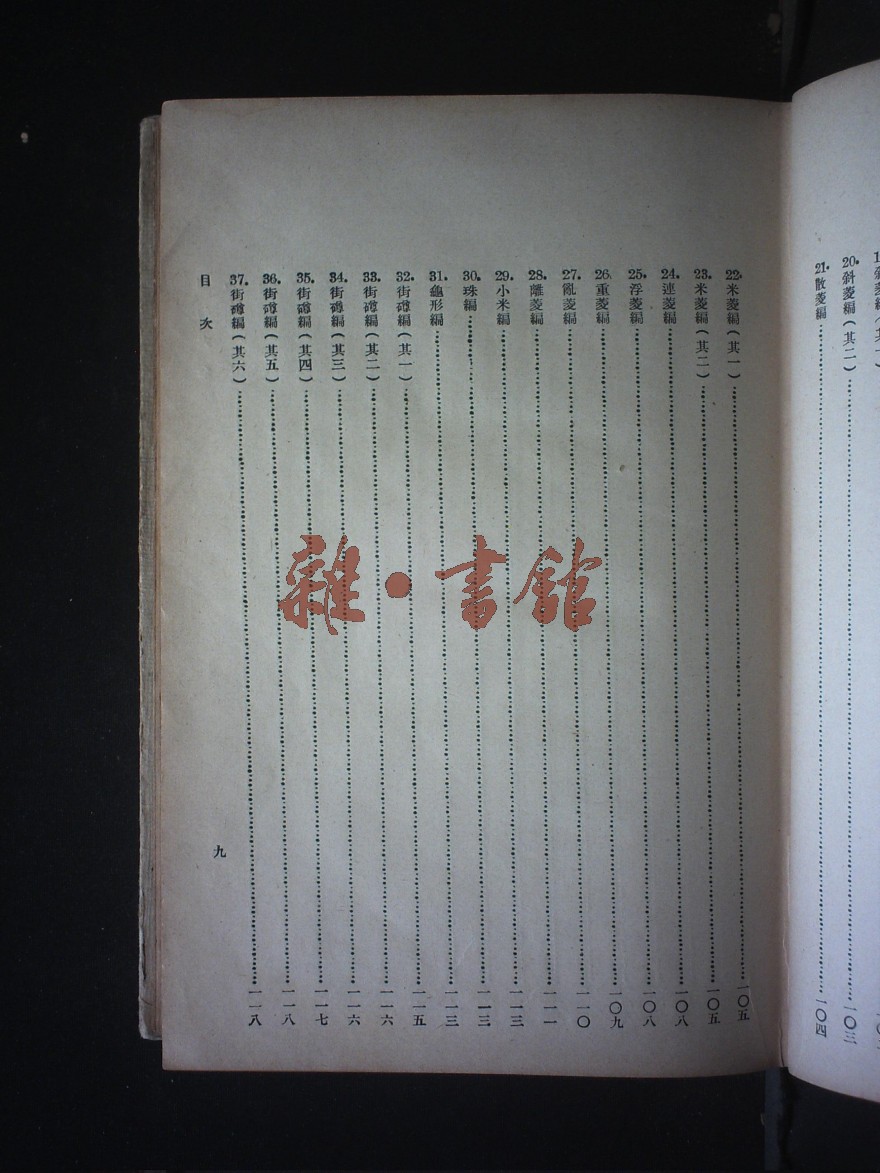 20.斜菱編(其二)……一〇三
21.散菱編……一〇四
22.米菱編(其一)……一〇五
23.米菱編(其二)……一〇五
24.連菱編……一〇八
25.浮菱編……一〇八
26.重菱編……一〇九
27.亂菱編……一一〇
28.離菱編……一一一
29.小米編……一一三
30.珠編……一一三
31.龜形編……一一三
32.街磚編(其一)……一一五
33.街磚編(其二)……一一六
34.街磚編(其三)……一一六
35.街磚編(其四)……一一七
36.街磚編(其五)……一一八
37.街磚編(其六)……一一八
目次
九
雜·書館